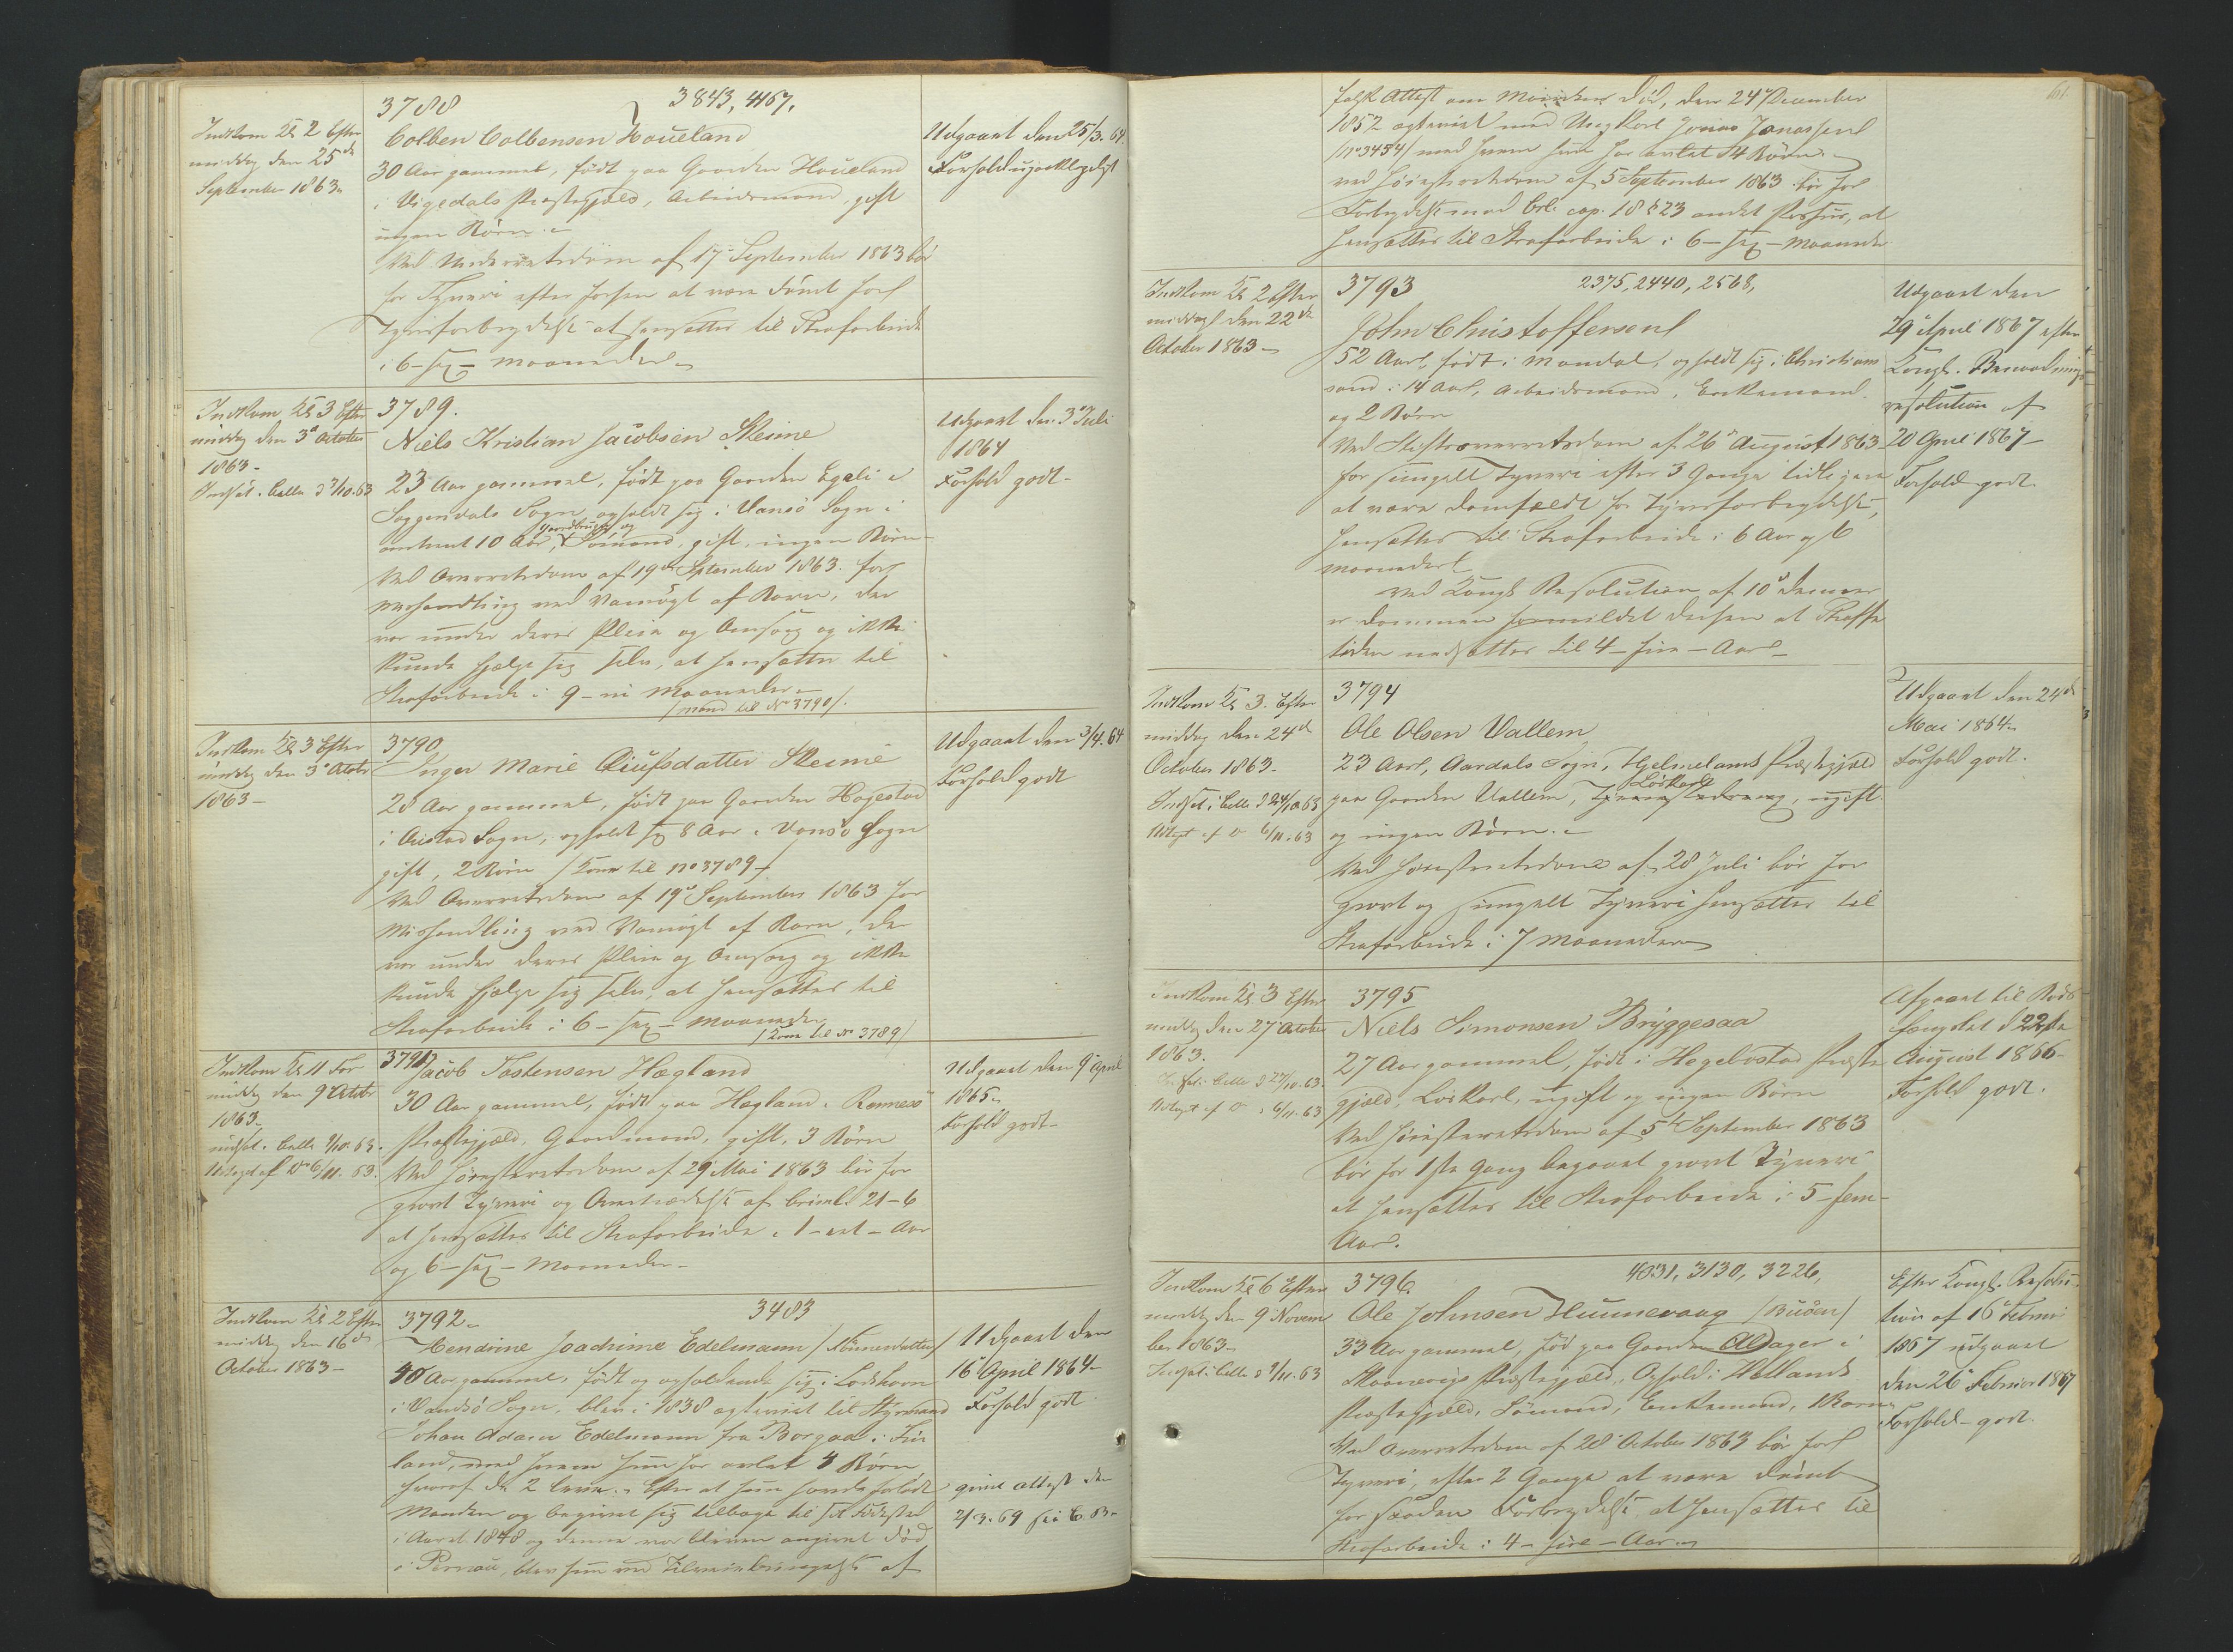 3788
3843, 4167.
Indkom Kl 2 Efter
middag den 25de
September 1863.
Colben Colbensen Houeland
30 Aar gammel, født paa Gaarden Houeland
i Vigedals Præstegjæld, Arbeidsmand, gift
ingen Børn.
Ved Underretsdom af 17 September 1863 bør
for Tyveri efter forhen at være dømt for
Tyvsforbrydelse at hensættes til Strafarbeide
i 6 - sex - Maaneder
Udgaaet den 25/3. 64.
Forhold upaaklageligt
Indkom Kl 3 Efter
middag den 3de October
1863 -
Indsat i Celle d 3/10. 63
3789.
Niels Kristian Jacobsen Skeime
23 Aar gammel, født paa Gaarden Egeli i
Soggendals Sogn, opholdt sig i Vansø Sogn i
omtrent 10 Aar, Gaardbruger og Sømand, gift, ingen Børn -
Ved Overretsdom af 19de September 1863 for
Mishandling ved Vanrøgt af Børn, der
var under deres Pleie og Omsorg og ikke
kunde hjælpe sig selv, at hensættes til
Strafarbeide i 9 - ni Maaneder -
/Mand til No 3790/.
Udgaaet den 3de Juli
1864
Forhold godt -
Indkom Kl 3 Efter
middag den 3de Octobr
1863 -
3790
Inger Marie Skeime
28 Aar gammel, født paa Gaarden Hogestad
i Sogn, opholdt sig 8 Aar i Vansø Sogn
gift, 2 Børn /Kone til No 3789/
Ved Overretsdom af 19de September 1863 for
Mishandling ved Vanrøgt af Børn, der
var under deres Pleie og Omsorg og ikke
kunde hjælpe sig selv, at hensættes til
Strafarbeide i 6 - sex - Maaneder
/Kone til No 3789/
Udgaaet den 3/4. 64
Forhold godt
Indkom Kl 11 For
middag den 9de Octbr
1863.
indsat i Celle 9/10. 63.
Udtaget af Do 6/11. 63.
3791
Jacob Tostensen Hægland
30 Aar gammel, født paa Hægland i Rennesø
Præstegjæld, Gaardmand, gift, 3 Børn
Ved Høiesteretsdom af 29 Mai 1863 bør for
grovt Tyveri og Overtrædelse af Criml. 21-6
at hensættes til Strafarbeide i 1 - eet - Aar
og 6 - sex - Maaneder -
Udgaaet den 9 April
1865.
Forhold godt -
Indkom Kl 2 Efter
middag den 16de
October 1863 -
3792.
3483
Hendrine Joachime Edelmann
48 Aar gammel, født og opholdende sig i Loshavn
i Vandsø Sogn, blev i 1838 ægteviet til Styrmand
Johan Adam Edelmann fra Borgaae i Fin
land, med hvem hun har avlet 4 Børn
hvoraf de 2 leve. Efter at hun havde forladt
Manden og begivet sig tilbage til sit Fødested
i Aaret 1848 og denne var bleven angivet død
i Pernau, blev hun ved Tilveiebringelse af
Udgaaet den
16 April 1864 -
Forhold godt
givet Attest den
2/3. 69
61.
falsk Attest om Mandens Død, den 24de December
1852 ægteviet med Ungkarl Jonas Jonassen
/No 3454/ med hvem hun har avlet 4 Børn.
ved Høiesteretsdom af 5 September 1863 bør for
Forbrydelse mod Crl. cap. 18 § 23 andet Passus, at
hensættes til Strafarbeide i 6 - sex - Maaneder
Indkom Kl 2 Efter
middag den 22de
October 1863 -
3793
2375, 2440, 2568,
John Christoffersen
52 Aar, født i Mandal, opholdt sig i Christian
sand i 14 Aar, Arbeidsmand, Enkemand
og 2 Børn
Ved Stiftsoverretsdom af 26de August 1863
for simpelt Tyveri efter 3 Gange tidligere
at være domfældt for Tyvsforbrydelse,
hensættes til Strafarbeide i 6 Aar og 6
Maaneder
Ved Kongl Resolution af 10de
er Dommen formildet derhen at Straffe
tiden nedsættes til 4 - fire - Aar -
Udgaaet den
29 April 1867 efter
Kongl. Benaadnings
resolution af
20 April 1867 -
Forhold godt.
Indkom Kl 3. Efter
middag den 24de
October 1863 -
Indsat i Celle d 24/10 63
Udtaget af Do 6/11. 63
3794
Ole Olsen Vallem
23 Aar, Aardals Sogn, Hjelmelands Præstegjæld
paa Gaarden Vallem, Løskarl, ugift
og ingen Børn. -
Ved Høiesteretsdom af 28 Juli bør for
grovt og simpelt Tyveri hensættes til
Strafarbeide i 7 Maaneder
Udgaaet den 24de
Mai 1864.
Forhold godt.
Indkom Kl 3 Efter
middag den 27 October
1863.
Indsat i Celle d 27/10. 63.
Udtaget af Do 6/11. 63
3795
Niels Simonsen Bryggesaa
27 Aar gammel, født i Hegebostad Præste
gjæld, Løskarl, ugift og ingen Børn
Ved Høiesteretsdom af 5te September 1863
bør for 1ste Gang begaaet grovt Tyveri
at hensættes til Strafarbeide i 5 - fem -
Aar.
Afgaaet til Bods
fængslet d 22de
August 1866 -
Forhold godt.
Indkom Kl 6 Efter
middag den 9 Novem
ber 1863.
Indsat i Celle d 9/11. 63
3796.
4031, 3130, 3226,
Ole Johnsen Hunnevaag /Buøen/
33 Aar gammel, født paa Gaarden i
Skaanevigs Præstegjæld, Ophold i Hetlands
Præstegjæld, Sømand, Enkemand, 1 Barn
Ved Overretsdom af 28 October 1863 bør for
Tyveri, efter 2 Gange at være dømt
for saadan Forbrydelse, at hensættes til
Strafarbeide i 4 - fire - Aar
Efter Kongl. Resolu
tion af 16de Februar
1867 udgaaet
den 26de Februar 1867
Forhold - godt.